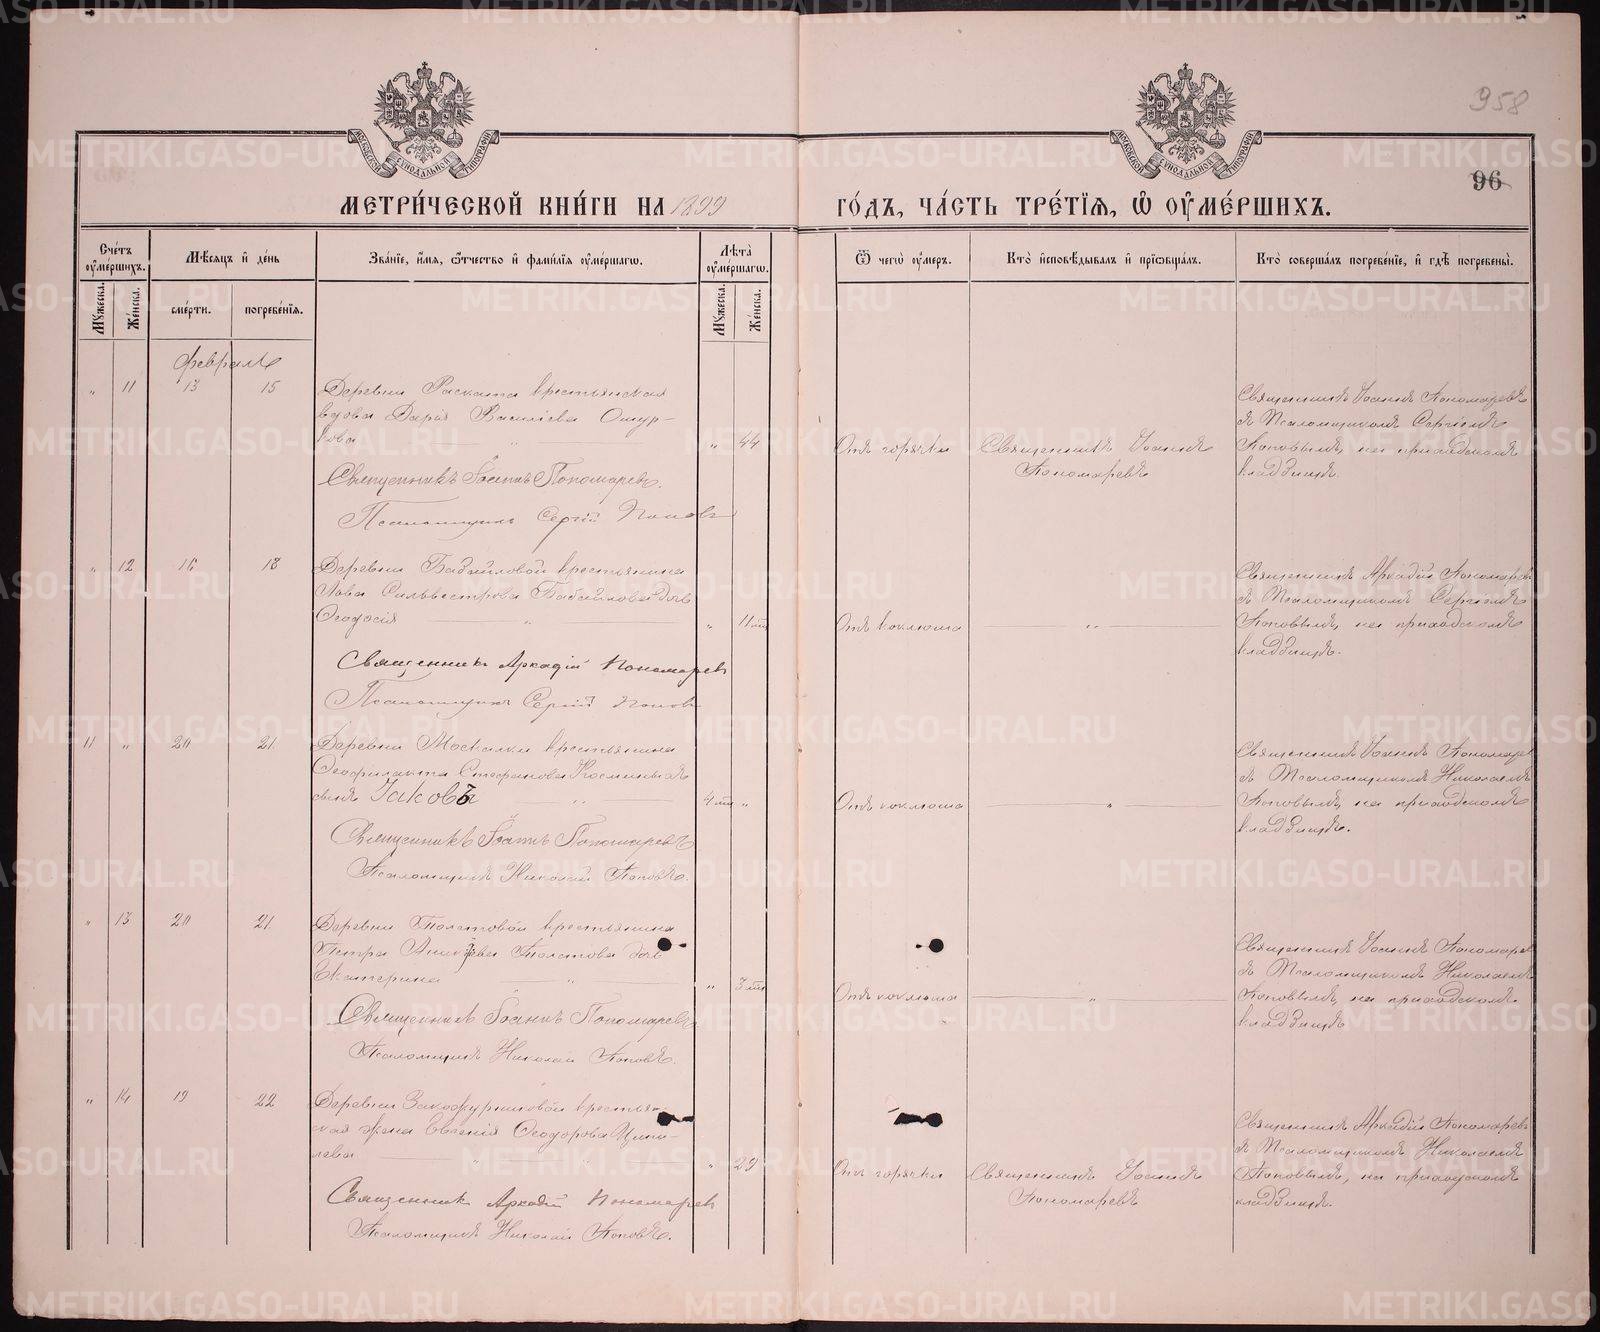 958
96
МЕТРИ́ЧЕСКОЙ КНИ́ГИ НА 1899 ГО́ДЪ, ЧА́СТЬ ТРЕ́ТІѦ, Ѡ ОУМЕ́РШИХЪ.
Сче́тъ оуме́ршихъ.
Мѣ́сяцъ и де́нь
Зва́ніе, и́мя, ѻ́тчество и фами́лія оуме́ршагѡ.
Лѣта̀ оуме́ршагѡ.
Ѿ чегѡ̀ оу́меръ.
Кто̀ исповѣ́дывалъ и пріѡбща́лъ.
Кто̀ соверша́лъ погребе́ніе, и гдѣ̀ погребены̀.
Му́жеска.
Же́нска.
сме́рти.
погребе́нія.
Му́жеска.
Же́нска.
Февраль
„ 11 13 15
Деревни Раската крестьянская
вдова Дарія Василіева Ошур-
кова „ 44
Священникъ Іоаннъ Пономаревъ.
Псаломщикъ Сергій Поповъ
Отъ горячки
Священникъ Іоаннъ
Пономаревъ
Священникъ Іоаннъ Пономаревъ
съ Псаломщикомъ Сергіемъ
Поповымъ, на приходскомъ
кладбищѣ.
„ 12 16 18
Деревни Бабайловой крестьянина
Іова Сильвестрова Бабайлова дочь
Ѳеодосія „ 11 м.
Священникъ Аркадій Пономаревъ
Псаломщикъ Сергій Поповъ
Отъ коклюша
Священникъ Аркадій Пономаревъ
съ Псаломщикомъ Сергіемъ
Поповымъ, на приходскомъ
кладбищѣ.
11 „ 20 21
Деревни Москалки крестьянина
Ѳеофилакта Стефанова Косминыхъ
сынъ Іаковъ 4 м. „
Священникъ Іоаннъ Пономаревъ
Псаломщикъ Николай Поповъ.
Отъ коклюша
Священникъ Іоаннъ Пономарев
съ Псаломщикомъ Николаемъ
Поповымъ, на приходскомъ
кладбищѣ.
„ 13 20 21
Деревни Толстовой крестьянина
Петра Аникіева Толстова дочь
Екатерина „ 3 м.
Священникъ Іоаннъ Пономаревъ
Псаломщикъ Николай Поповъ.
Отъ коклюша
Священникъ Іоаннъ Пономарев
съ Псаломщикомъ Николаемъ
Поповымъ, на приходскомъ
кладбищѣ
„ 14 19 22
Деревни крестьян-
ская жена Евгенія Ѳеодорова
„ 29
Священникъ Аркадій Пономаревъ
Псаломщикъ Николай Поповъ.
Отъ горячки
Священникъ Іоаннъ
Пономаревъ
Священникъ Аркадій Пономаревъ
съ Псаломщикомъ Николаемъ
Поповымъ, на приходскомъ
кладбищѣ.
METRIKI.GASO-URAL.RU